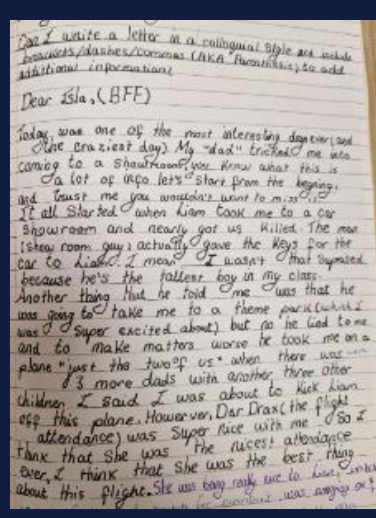 Can I write a letter in a colloquial style and include
brackets/dashes/commas (AKA Parenthesis) to add
additional information?
Dear Isla, (BFF)
Today, was one of the most interesting days ever (and
the craziest day) My "dad" tricked me into
coming to a showroom, you know what this is
a lot of info let's start from the begining,
and trust me you wouldn't want to miss it
It all started when Liam took me to a car
showroom and nearly got us killed. The man
(show room guy) actually gave the keys for the
car to Liam. I mean I wasn't that suprised
because he's the tallest boy in my class.
Another thing that he told me was that he
was going to take me to a theme park (which I
was super excited about) but no he lied to me
and to make matters worse he took me on a
plane "just the two of us" when there was
3 more dads with another three other
children I said I was about to kick Liam
off this plane. However, Dar Drax (the flight
attendance) was super nice with me So I
think that she was the nicest attendance
ever, I think that she was the best thing
about this flight. She was being really nice to